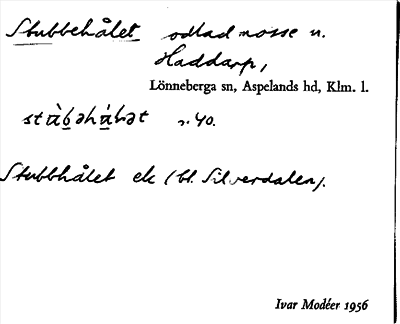 Stubbehålet odlad mosse n.
Haddarp,
Lönneberga sn, Aspelands hd, Klm. l.
40.
Stubbhålet ek (bl. Silverdalen).
Ivar Modéer 1956